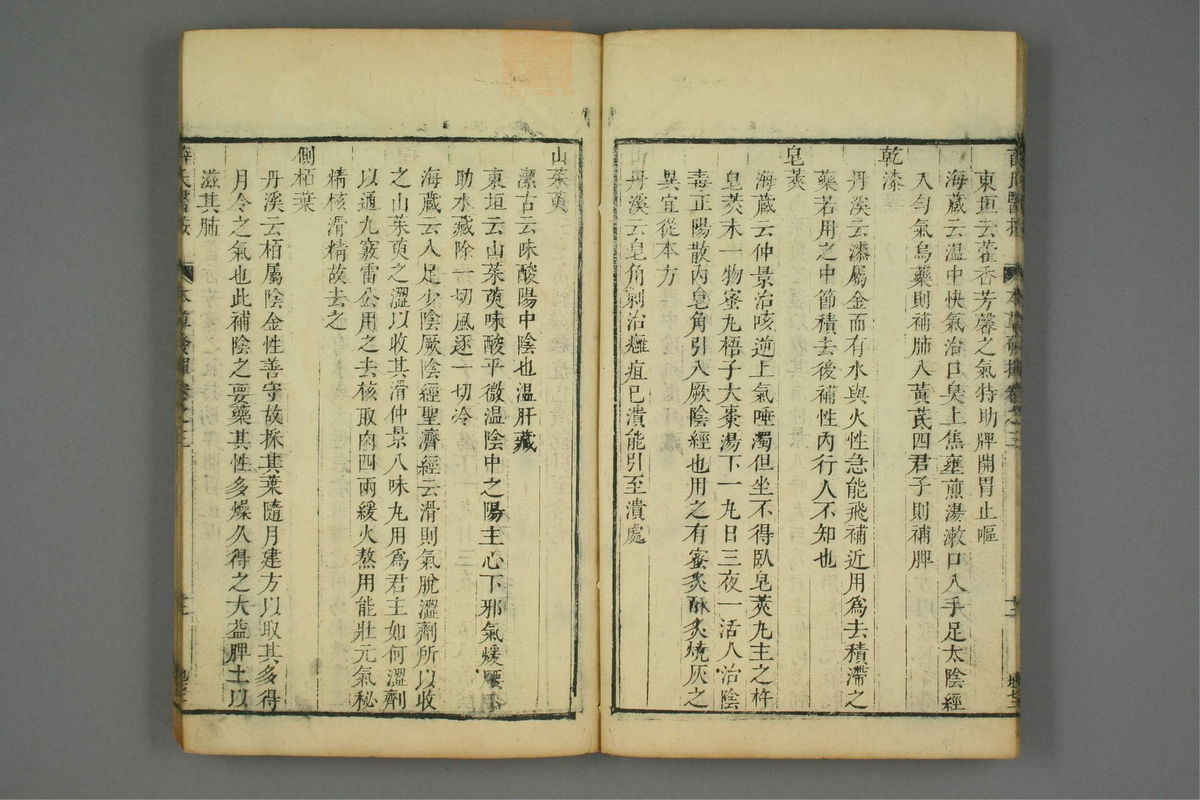 東垣云藿香芳馨之氣特助脾開胃止嘔
海藏云溫中快氣治口臭上焦壅煎湯漱口入手足太陰經
入勻氣烏藥則補肺入黃芪四君子則補脾
乾漆
丹溪云漆屬金而有水與火性急能飛補近用爲去積滯之
藥若用之中節積去後補性內行人不知也
皂莢
海藏云仲景治咳逆上氣唾濁但坐不得臥皂莢丸主之杵
皂莢末一物蜜丸梧子大棗湯下一丸日三夜一活人治陰
毒正陽散內皂角引入厥陰經也用之有蜜炙酥炙燒灰之
異宜從本方
丹溪云皂角刺治癰疽已潰能引至潰處
山茱萸
潔古云味酸陽中陰也溫肝藏
東垣云山茱萸味酸平微溫陰中之陽主心下邪氣煖腰
助水藏除一切風逐一切冷
海藏云入足少陰厥陰經聖濟經云滑則氣脫澀劑所以收
之山茱萸之澀以收其滑仲景八味丸用爲君主如何澀劑
以通九竅雷公用之去核取肉四兩緩火熬用能壯元氣秘
精核滑精故去之
側栢葉
丹溪云栢屬陰金性善守故採其葉隨月建方以取其多得
月令之氣也此補陰之要藥其性多燥久得之大益脾土以
滋其肺
本草發揮 卷之三